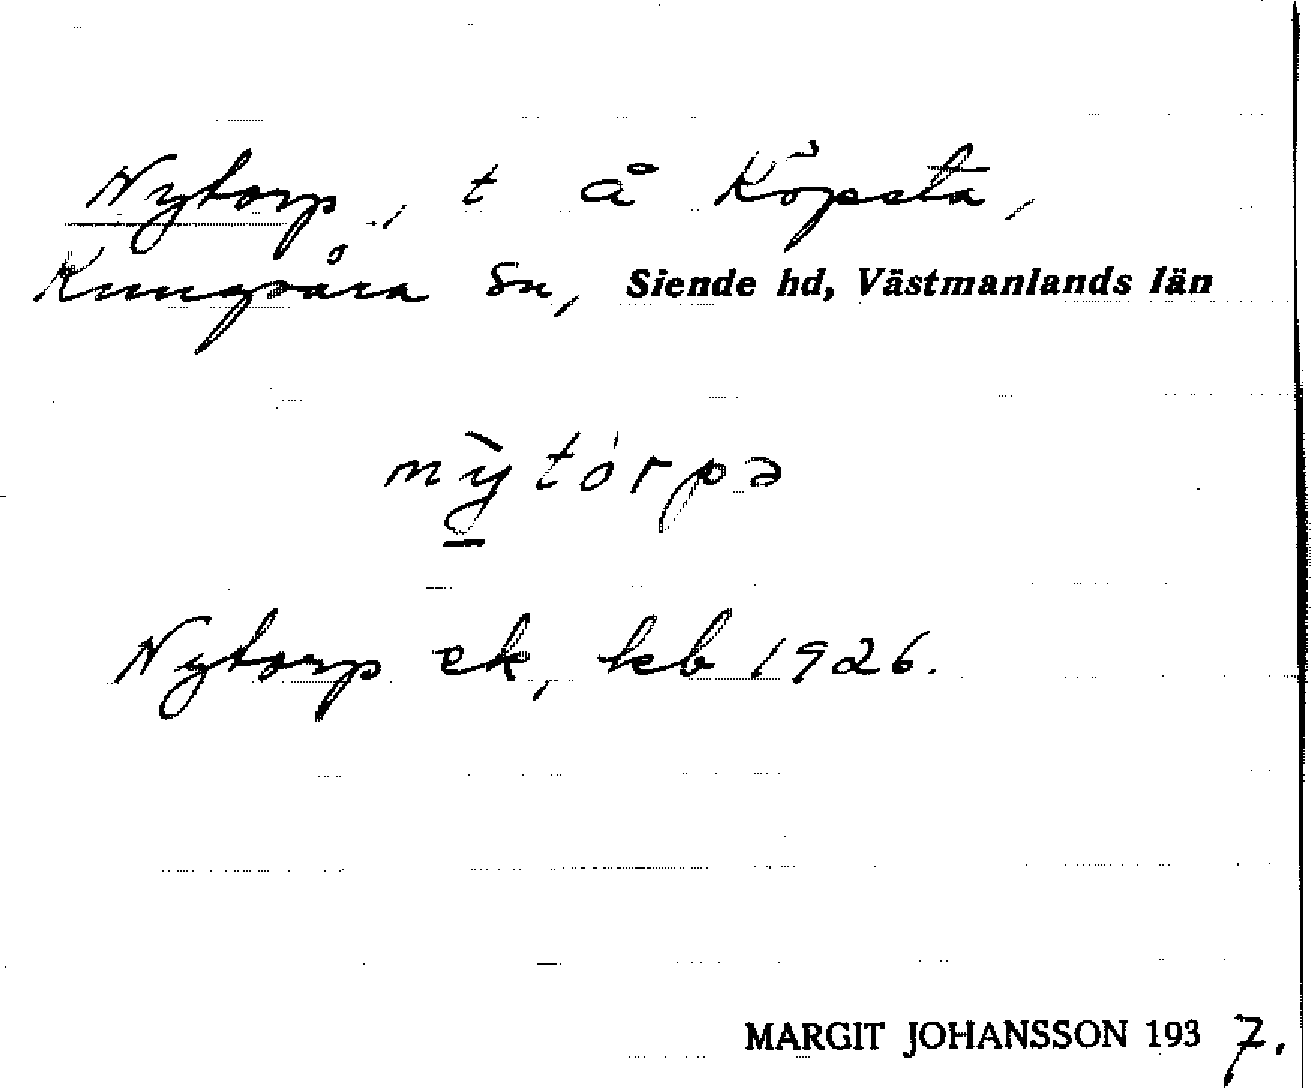 Nytorp, t å Köpsta,
Kungsåra Sn, Siende hd, Västmanlands län
nỳtórpə
Nytorp ek, kb 1926.
MARGIT JOHANSSON 1937.